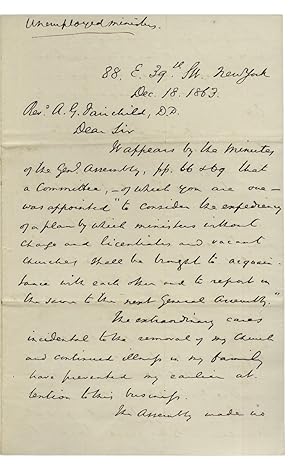 Unemployed ministers.
88. E. 39th St. New York
Dec. 18. 1863.
Revd A. G. Fairchild, D.D.
Dear Sir
It appears by the Minutes
of the Genl Assembly, pp. 66 & 69 that
a Committee, – of which you are one –
was appointed "to consider the expediency
of a plan by which ministers without
charge and licentiates and vacant
churches shall be brought to acquain-
tance with each other and to report on
the same to the next General Assembly."
The extraordinary cares
incidental to the removal of my Church
and continued illness in my family
have prevented my earlier at-
tention to this business.
The Assembly made no